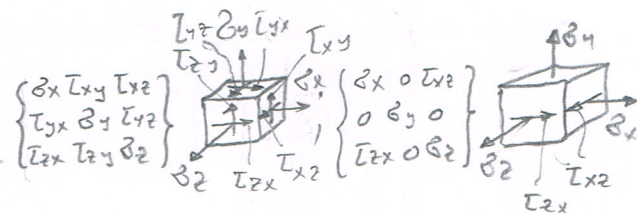 τyz σy τyx
τzy τxy
σx τxy τxz
τyx σy τyz
τzx τzy σz
σx
σz τzx τxz
;
σx 0 τxz
0 σy 0
τzx 0 σz
σy
σx
σz τxz
τzx